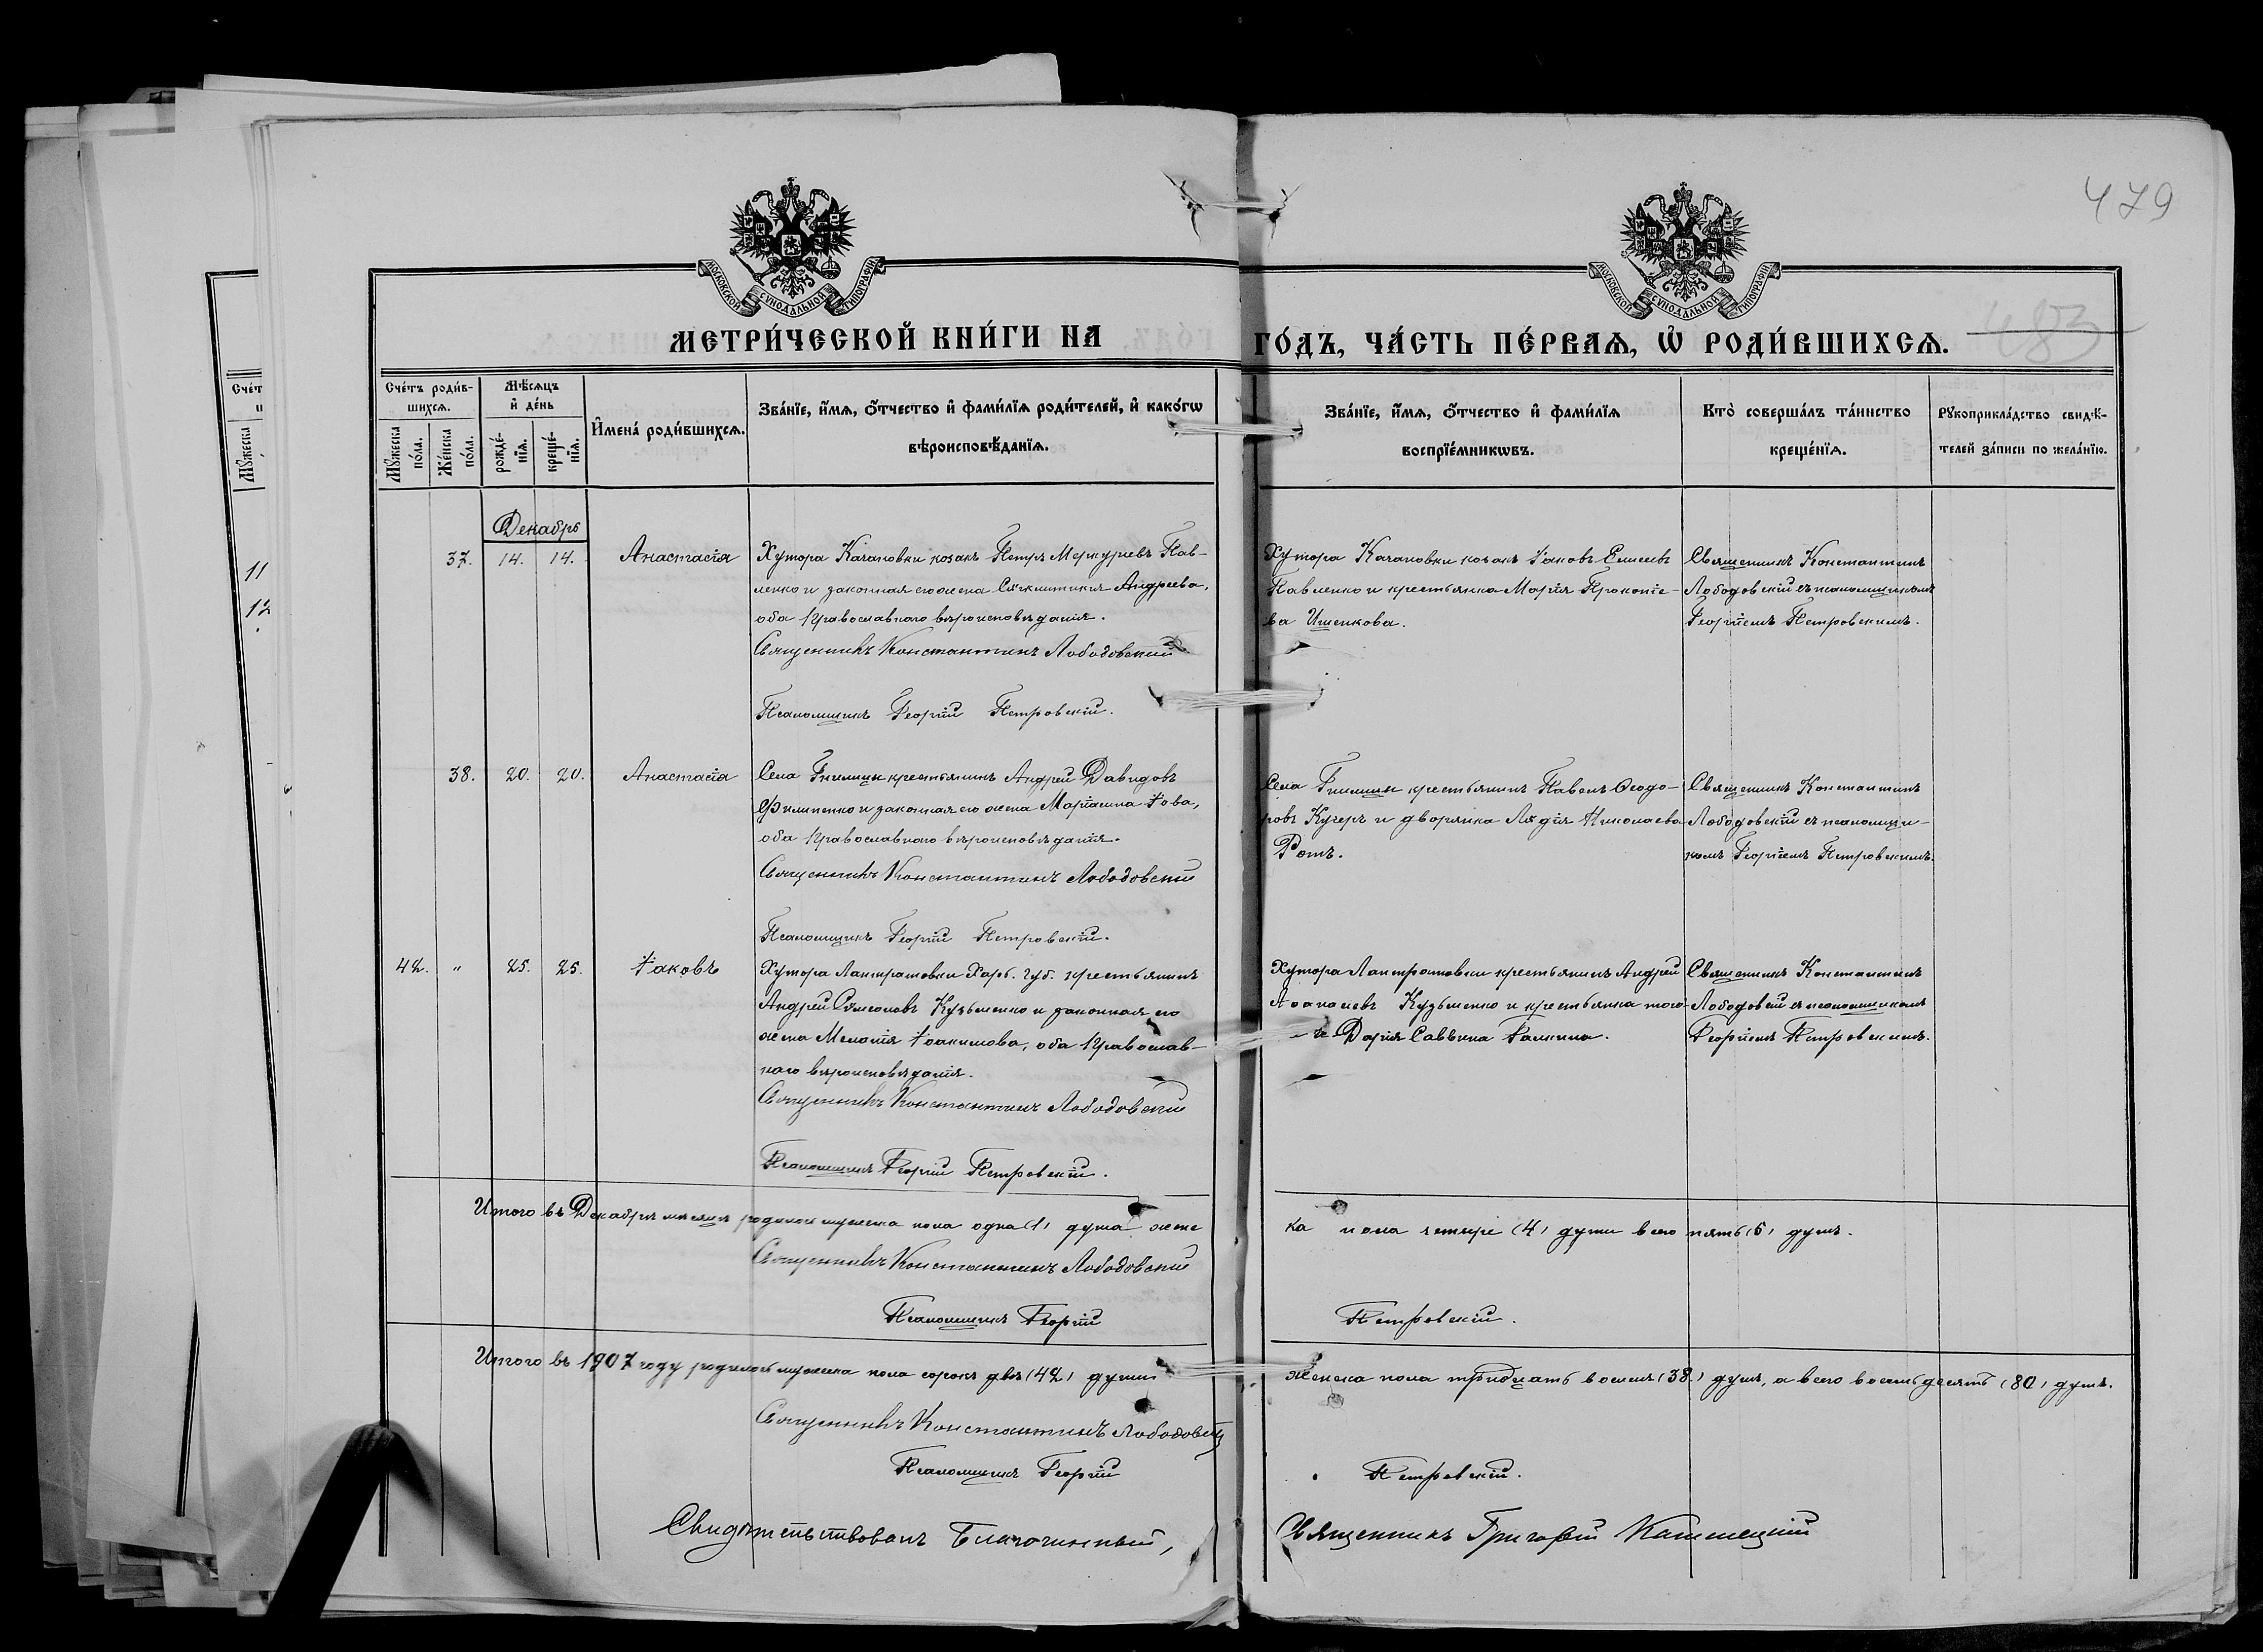 479
МОСКОВСКОЙ СѴНОДАЛЬНОЙ ТИПОГРАФІИ
МОСКОВСКОЙ СѴНОДАЛЬНОЙ ТИПОГРАФІИ
483
МЕТРИ́ЧЕСКОЙ КНИ́ГИ НА ГО́ДЪ, ЧА́СТЬ ПЕ́РВАѦ, Ѡ҆ РОДИ́ВШИХСѦ.
Сче́тъ роди́в-
шихсѧ.
Мꙋ́жеска по́ла.
Же́нска по́ла.
Мѣ́сѧцъ
и҆ де́нь
рожде́-
нїѧ.
креще́-
нїѧ.
И҆мена̀ роди́вшихсѧ.
Зва́нїе, и҆́мѧ, ѻ҆́тчество и҆ фами́лїѧ роди́телей, и҆ како́гѡ
вѣроисповѣ́данїѧ.
Зва́нїе, и҆́мѧ, ѻ҆́тчество и҆ фами́лїѧ
воспрїе́мникѡвъ.
Кто̀ соверша́лъ та́инство
креще́нїѧ.
Рꙋкоприкла́дство свидѣ́-
телей за́писи по жела́нїю.
Сче́т
Мꙋ́жеска
11
12
Декабрь
37. 14. 14. Анастасія
Хутора Качановки козакъ Петръ Меркурьевъ Пав-
ленко и законная его жена Андреева,
оба Православнаго вѣроисповѣданія.
Священникъ Константинъ Лободовскій
Псаломщикъ Георгій Петровскій.
Хутора Качановки козакъ Іаковъ Елисеевъ
Павленко и крестьянка Марія Прокопіе-
ва
Священникъ Константинъ
Лободовскій съ псаломщикомъ
Георгіемъ Петровскимъ.
38. 20. 20. Анастасія
Села Гнилицы крестьянинъ Андрей Давидовъ
Филипенко и законная его жена Маріамна Іова,
оба Православнаго вѣроисповѣданія.
Священникъ Константинъ Лободовскій
Псаломщикъ Георгій Петровскій.
Села Гнилицы крестьянинъ Павелъ Ѳеодо-
ровъ Кучеръ и дворянка Лидія Николаева
Ротъ.
Священникъ Константинъ
Лободовскій съ псаломщи-
комъ Георгіемъ Петровскимъ.
42. " 25. 25. Іаковъ
Хутора Лантратовки Харь. губ. крестьянинъ
Андрей Сѵмеоновъ Кузьменко и законная его
жена Меланія Іоакимова, оба Православ-
наго вѣроисповѣданія.
Священникъ Константинъ Лободовскій
Псаломщикъ Георгій Петровскій.
Хутора Лантратовки крестьянинъ Андрей
Аѳанасіевъ Кузьменко и крестьянка того-
-же Дарія Саввина Галкина.
Священникъ Константинъ
Лободовскій съ псаломщикомъ
Георгіемъ Петровскимъ.
Итого въ Декабрѣ мѣсяцѣ родилось мужеска пола одна (1) душа женс ка пола четыре (4) души всего пять (5) душъ.
Священникъ Константинъ Лободовскій
Псаломщикъ Георгій Петровскій.
Итого въ 1907 году родилось мужеска пола сорокъ двѣ (42) души женска пола тридцать восемь (38) душъ, а всего восемьдесятъ (80) душъ.
Священникъ Константинъ Лободовскій
Псаломщикъ Георгій Петровскій.
Свидѣтельствовалъ Благочинный, Священникъ Григорій